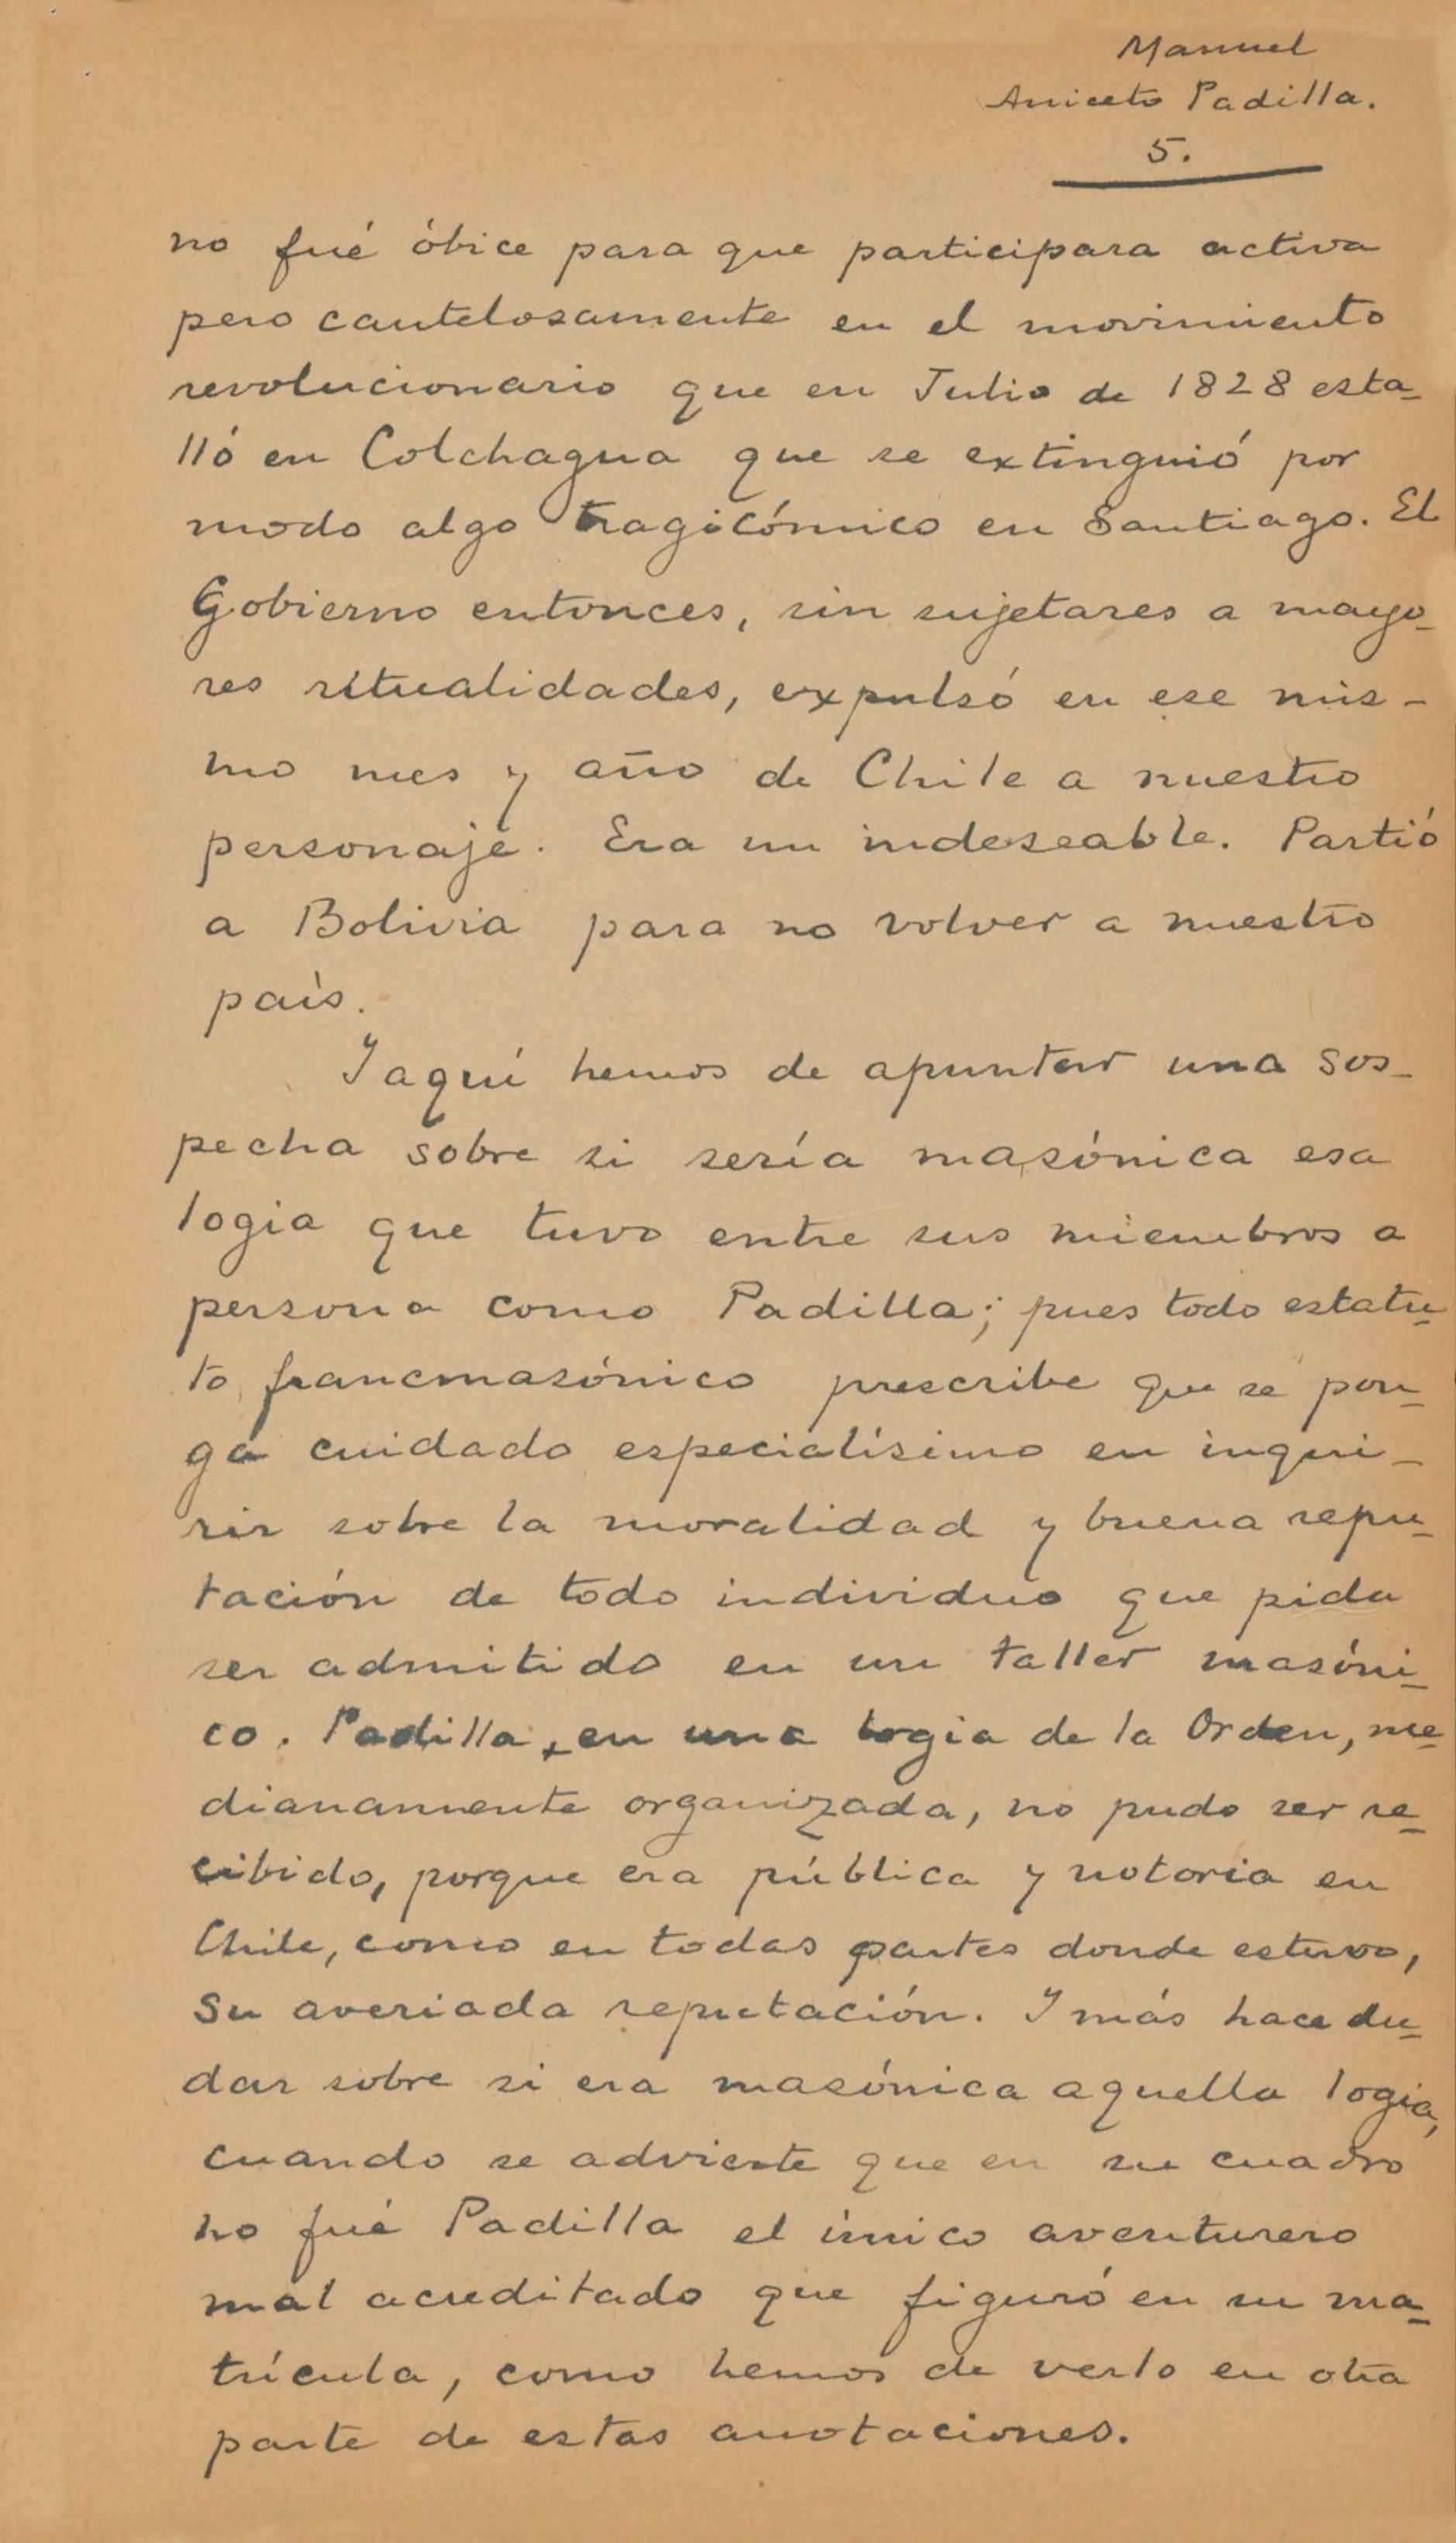 Manuel
Aniceto Padilla.
5.
no fué óbice para que participara activa
pero cautelosamente en el movimiento
revolucionario que en Julio de 1828 esta-
lló en Colchagua que se extinguió por
modo algo tragicómico en Santiago. El
Gobierno entonces, sin sujetares a mayo-
res ritualidades, expulsó en ese mis-
mo mes y año de Chile a nuestro
personaje. Era un indeseable. Partió
a Bolivia para no volver a nuestro
país.
I aquí hemos de apuntar una sos-
pecha sobre si sería masónica esa
logia que tuvo entre sus miembros a
persona como Padilla; pues todo estatu-
to francmasónico prescribe que se pon-
ga cuidado especialísimo en inqui-
rir sobre la moralidad y buena repu-
tación de todo individuo que pida
ser admitido en un taller masóni-
co. Padilla, en una logia de la Orden, me-
dianamente organizada, no pudo ser re-
cibido, porque era pública y notoria en
Chile, como en todas partes donde estuvo,
su averiada reputación. I más hace du-
dar sobre si era masónica aquella logia,
cuando se advierte que en su cuadro
no fué Padilla el único aventurero
mal acreditado que figuró en su ma-
trícula, como hemos de verlo en otra
parte de estas anotaciones.